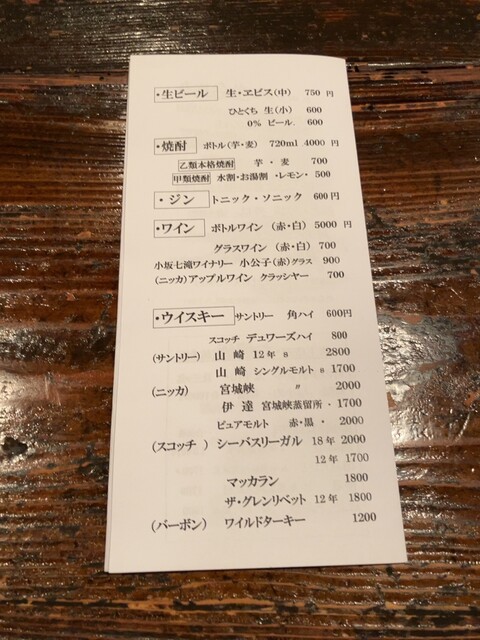 ・生ビール 生・ヱビス(中) 750 円
ひとくち 生(小) 600
0% ビール. 600
・焼酎 ボトル(芋・麦) 720ml 4000 円
乙類本格焼酎 芋・麦 700
甲類焼酎 水割・お湯割・レモン・ 500
・ジン トニック・ソニック 600円
・ワイン ボトルワイン (赤・白) 5000 円
グラスワイン (赤・白) 700
小坂七滝ワイナリー 小公子(赤)グラス 900
(ニッカ)アップルワイン クラッシャー 700
・ウイスキー サントリー 角ハイ 600円
スコッチ デュワーズハイ 800
(サントリー) 山崎 12年 s 2800
山崎 シングルモルト s 1700
(ニッカ) 宮城峡 〃 2000
伊達 宮城峡蒸留所. 1700
ピュアモルト 赤・黒・ 2000
(スコッチ ) シーバスリーガル 18年 2000
12年 1700
マッカラン 1800
ザ・グレンリベット 12年 1800
(バーボン) ワイルドターキー 1200